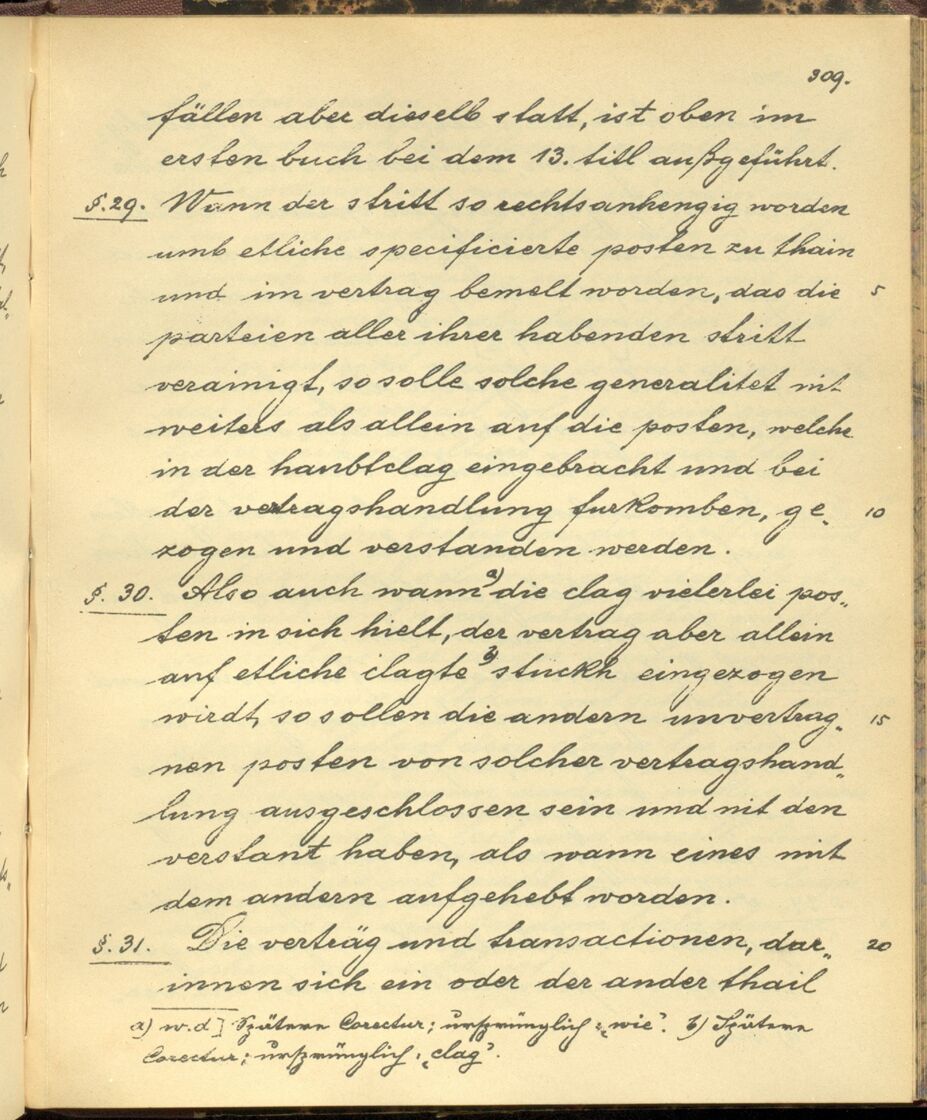 309.
fällen aber dieselb statt, ist oben im
ersten buch bei dem 13. titl außgeführt.
§. 29. Wann der stritt so rechtsanhengig worden
umb etliche specificierte posten zu thain
und im vertrag bemelt worden, das die 5
parteien aller ihrer habenden stritt
verainigt, so solle solche generalitet nit
weiters als allein auf die posten, welche
in der haubtclag eingebracht und bei
der vertragshandlung furkomben, ge„ 10
zogen und verstanden werden.
§. 30. Also auch wann a) die clag vielerlei pos„
ten in sich hielt, der vertrag aber allein
auf etliche clagte b) stuckh eingezogen
wirdt, so sollen die andern unvertrag„ 15
nen posten von solcher vertragshand„
lung ausgeschlossen sein und nit den
verstant haben, als wann eines mit
dem andern aufgehebt worden.
§. 31. Die verträg und transactionen, dar„ 20
innen sich ein oder der ander thail
a) w. d] Spätere Corectur; ursprünglich: „wie“. b) Spätere
Corectur; ursprünglich: „clag“.